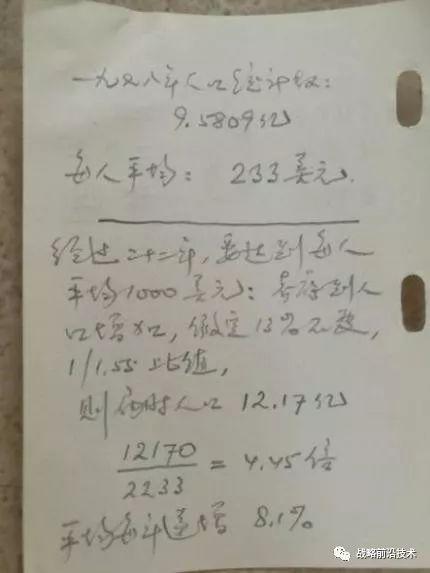 一九七八年人口统计数:
9.5809亿
每人平均: 233美元.
经过二十二年, 要达到每人
平均1000美元: 考虑到人
口增加, 假定13‰不变,
1/1.55比值,
则届时人口 12.17亿
12170
2233
= 4.45倍
平均每年递增 8.1%
战略前沿技术